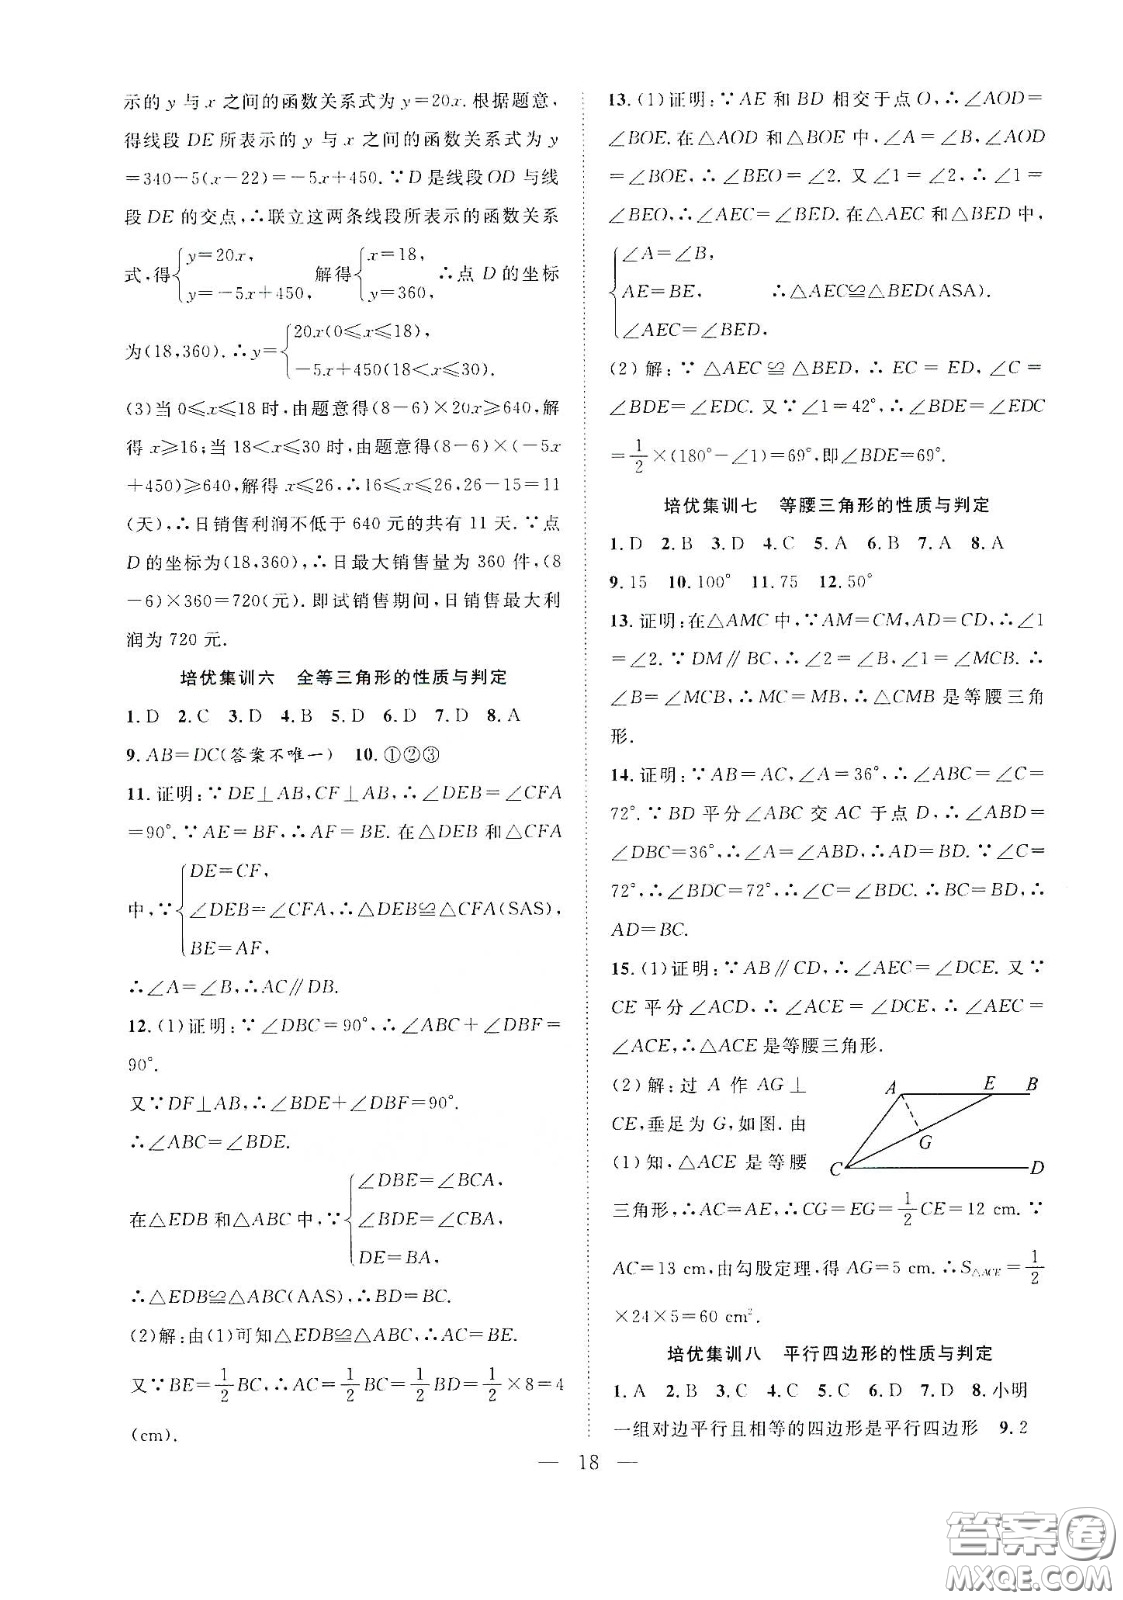 示的 y 与 x 之间的函数关系式为 y=20x. 根据题意,
得线段 DE 所表示的 y 与 x 之间的函数关系式为 y
=340-5(x-22)=-5x+450. ∵D 是线段 OD 与线
段 DE 的交点,∴联立这两条线段所表示的函数关系
式,得{y=20x, y=-5x+450, 解得{x=18, y=360, ∴点 D 的坐标
为(18,360). ∴y={20x(0≤x≤18), -5x+450(18<x≤30).
(3)当 0≤x≤18 时,由题意得(8-6)×20x≥640,解
得 x≥16;当 18<x≤30 时,由题意得(8-6)×(-5x
+450)≥640,解得 x≤26,∴16≤x≤26,26-15=11
(天),∴日销售利润不低于 640 元的共有 11 天. ∵点
D 的坐标为(18,360),∴日最大销售量为 360 件,(8
-6)×360=720(元). 即试销售期间,日销售最大利
润为 720 元.
培优集训六 全等三角形的性质与判定
1. D 2. C 3. D 4. B 5. D 6. D 7. D 8. A
9. AB=DC(答案不唯一) 10. ①②③
11. 证明:∵DE⊥AB,CF⊥AB,∴∠DEB=∠CFA
=90°. ∵AE=BF,∴AF=BE. 在△DEB 和△CFA
中,∵{DE=CF, ∠DEB=∠CFA, BE=AF, ∴△DEB≌△CFA(SAS),
∴∠A=∠B,∴AC∥DB.
12. (1)证明:∵∠DBC=90°,∴∠ABC+∠DBF=
90°.
又∵DF⊥AB,∴∠BDE+∠DBF=90°.
∴∠ABC=∠BDE.
在△EDB 和△ABC 中,∵{∠DBE=∠BCA, ∠BDE=∠CBA, DE=BA,
∴△EDB≌△ABC(AAS),∴BD=BC.
(2)解:由(1)可知△EDB≌△ABC,∴AC=BE.
又∵BE=1/2 BC,∴AC=1/2 BC=1/2 BD=1/2×8=4
(cm).
13. (1)证明:∵AE 和 BD 相交于点 O,∴∠AOD=
∠BOE. 在△AOD 和△BOE 中,∠A=∠B,∠AOD
=∠BOE,∴∠BEO=∠2. 又∵∠1=∠2,∴∠1=
∠BEO,∴∠AEC=∠BED. 在△AEC 和△BED 中,
{∠A=∠B, AE=BE, ∠AEC=∠BED, ∴△AEC≌△BED(ASA).
(2)解:∵△AEC≌△BED,∴EC=ED,∠C=
∠BDE=∠EDC. 又∵∠1=42°,∴∠BDE=∠EDC
=1/2×(180°-∠1)=69°,即∠BDE=69°.
培优集训七 等腰三角形的性质与判定
1. D 2. B 3. D 4. C 5. A 6. B 7. A 8. A
9. 15 10. 100° 11. 75 12. 50°
13. 证明:在△AMC 中,∵AM=CM,AD=CD,∴∠1
=∠2. ∵DM∥BC,∴∠2=∠B,∠1=∠MCB. ∴
∠B=∠MCB,∴MC=MB,∴△CMB 是等腰三角
形.
14. 证明:∵AB=AC,∠A=36°,∴∠ABC=∠C=
72°. ∵BD 平分∠ABC 交 AC 于点 D,∴∠ABD=
∠DBC=36°,∴∠A=∠ABD,∴AD=BD. ∵∠C=
72°,∴∠BDC=72°,∴∠C=∠BDC. ∴BC=BD,∴
AD=BC.
15. (1)证明:∵AB∥CD,∴∠AEC=∠DCE. 又∵
CE 平分∠ACD,∴∠ACE=∠DCE,∴∠AEC=
∠ACE,∴△ACE 是等腰三角形.
(2)解:过 A 作 AG⊥
CE,垂足为 G,如图. 由
(1)知,△ACE 是等腰
A E B
G
C D
三角形,∴AC=AE,∴CG=EG=1/2 CE=12 cm. ∵
AC=13 cm,由勾股定理,得 AG=5 cm. ∴S△ACE=1/2
×24×5=60 cm².
培优集训八 平行四边形的性质与判定
1. A 2. B 3. C 4. C 5. C 6. D 7. D 8. 小明
一组对边平行且相等的四边形是平行四边形 9. 2
— 18 —
答案圈
MXQE.COM